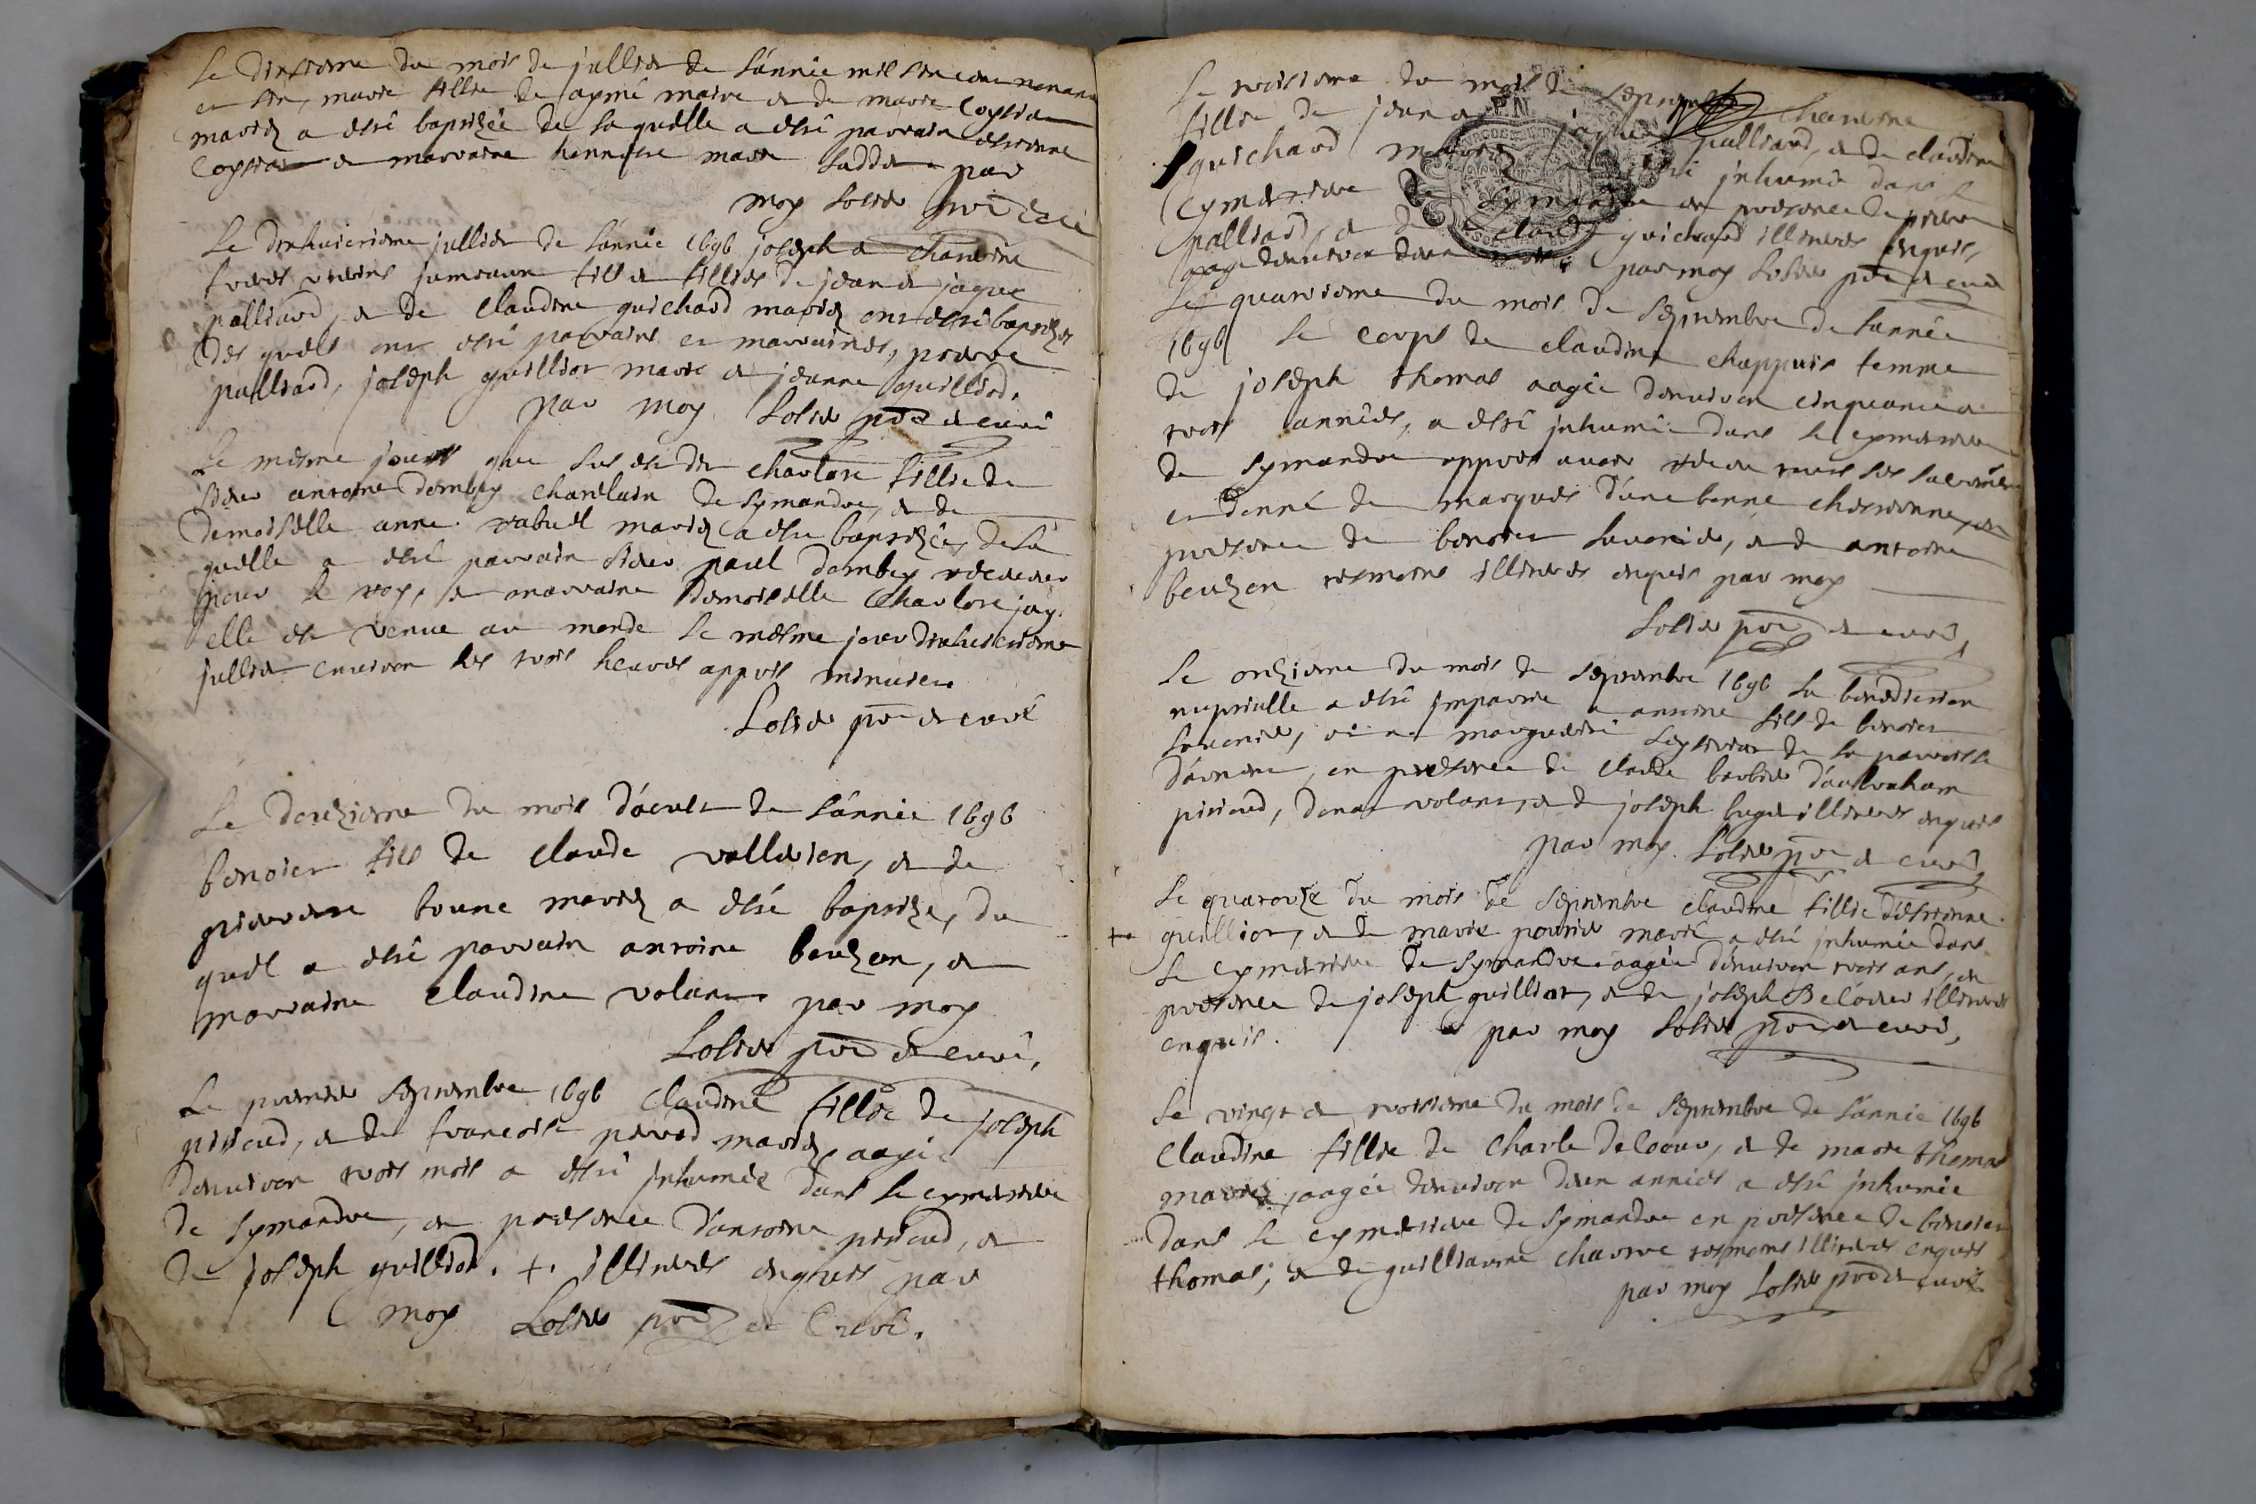 Le dixieme du mois de jullier de l'année mil six cens nonante
et six, marie fillie de aymé maire et de marie Coyssia
mariez a esté baptizée de laquelle a esté parrain estienne
Coyssia et marraine mare par
moy Solier
Le dixhuictieme jullier de l'année 1696 joseph et claudine
freres jumeaux fils et fillies de jean jaque
palliard, et de claudine guichard mariez ont esté baptizez
des quels ont esté parrains et marraines, pierre
palliard, joseph guilliot marie et jeanne guilliod.
par moy Solier pbre et curé
Le mesme jour que sus est dit charlote fillie de
sieur antoine dombey chastelain de symandre, et de
demoiselle anne rabuel mariez a esté baptizée, de la
quelle a esté parrain sieur paul dombey
pour le roy, et marraine demoiselle charlote jay.
elle est venue au monde le mesme jour dixhuictieme
jullier environ les trois heures appres minuict.
Solier pbre et curé
Le douziesme du mois d'aoust de l'année 1696
benoist fils de claude vallieren, et de
pierrette brune mariez a esté baptizé, du
quel a esté parrain antoine beuzon, et
marraine claudine volant par moy
Solier pbre et curé,
Le premier septembre 1696 claudine fillie de joseph
piricud, et de francoise perrod mariez, aagée
denviron trois mois a esté inhumée dans le cymetiere
de symandre, en presence d'antoine piricud, et
de joseph guilliod. +. illiteres enquis par
moy Solier pbre et Curé.
Le troisieme du mois de septembre claudine
fillie de jean jaque palliard, et de claudine
guichard mariez a esté inhumée dans le
cymetiere de symandre en presence de pierre
palliard, et de claude guichard illiteres enquis,
aagée denviron deux mois par moy Solier pbre et curé
Le quatrieme du mois de septembre de l'année
1696 le corps de claudine chappuis femme
de joseph thomas aagée denviron cinquante et
trois années, a esté inhumée dans le cymetiere
de symandre appres avoir receu tous ses sacremens
et donné de marques d'une bonne chrestienne, en
presence de benoist savarin, et de antoine
beuzon tesmoins illiteres enquis par moy
Solier pbre et curé,
Le onzieme du mois de septembre 1696 la benediction
nuptialle a esté impartie a antoine fils de benoist
savarin, et a marguerite de la parroisse
en presence de claude barbier d'abraham
piricud, denat volant, et de joseph illiteres enquis
par moy Solier pbre et curé,
Le quatorze du mois de septembre claudine fillie d'estienne
guilliot, et de marie mariez a esté inhumée dans
le cymetiere de symandre aagée denviron trois ans, en
presence de joseph guilliot, et de joseph Delcoeur illiteres
enquis. par moy Solier pbre et curé,
Le vingt et troisieme du mois de septembre de l'année 1696
claudine fillie de charle delcoeur, et de marie thomas
mariez, aagée denviron deux années a esté inhumée
dans le cymetiere de symandre en presence de benoist
thomas; et de guilliaume charve tesmoins illiteres enquis
par moy Solier pbre et curé